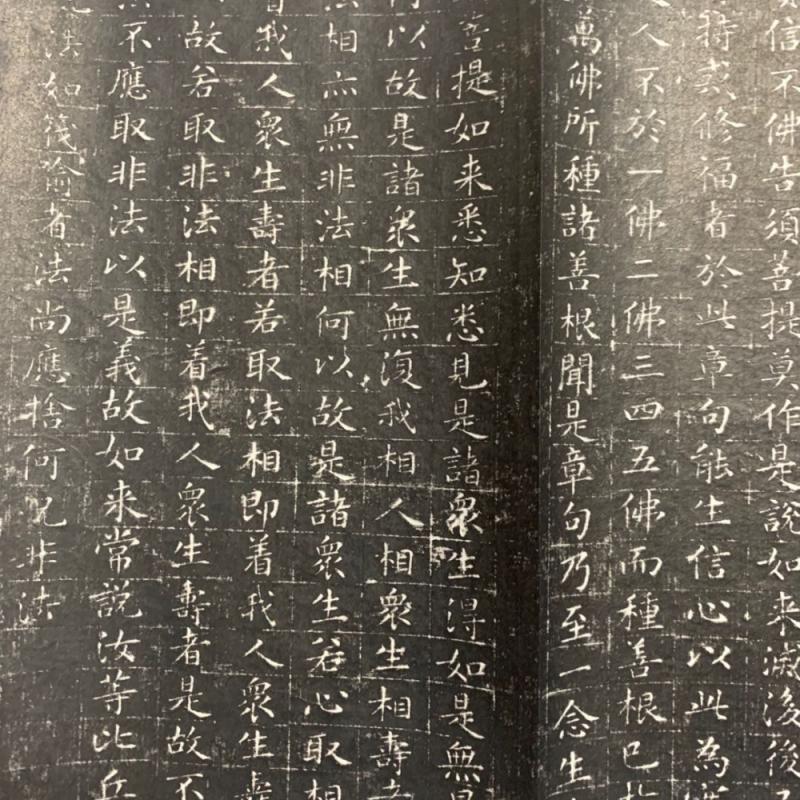 信不佛告須菩提莫作是說如来滅後後
持戒修福者於此章句能生信心以此為
人不於一佛二佛三四五佛而種善根已
萬佛所種諸善根聞是章句乃至一念生
菩提如来悉知悉見是諸衆生得如是無
何以故是諸衆生無復我相人相衆生相壽
法相亦無非法相何以故是諸衆生若心取相
着我人衆生壽者若取法相即着我人衆生壽
故若取非法相即着我人衆生壽者是故不
不應取非法以是義故如来常說汝等比丘
法如筏喻者法尚應捨何况非法